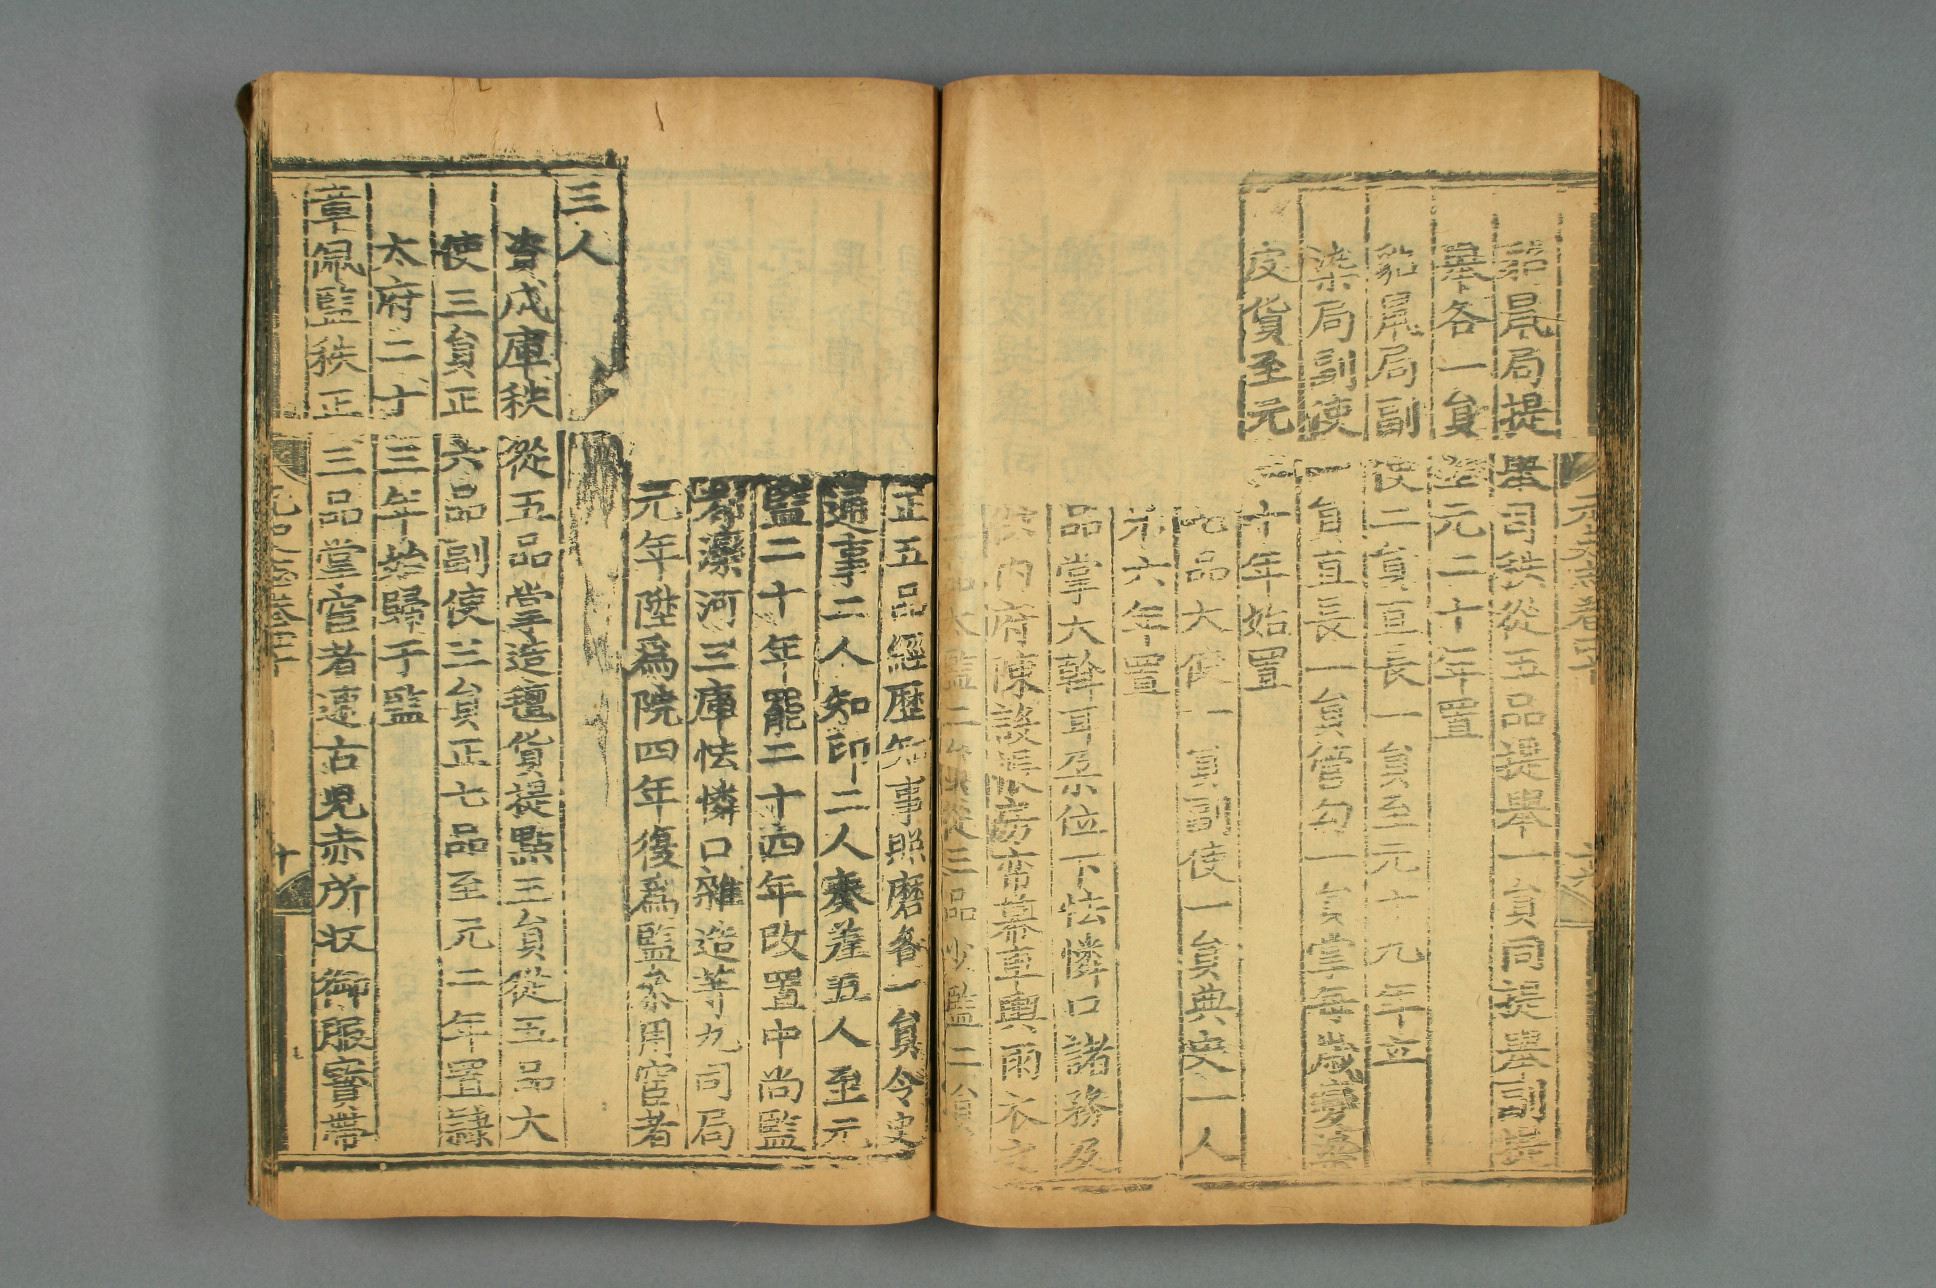 貂鼠局提舉司秩從五品提舉一員同提舉副提
舉各一員至元二十年置
貂鼠局副使二員直長一員至元十九年立
染局副使一員直長一員管勾一員掌每歲變染
皮貨至元二十年始置
九品大使一員副使一員典史一人
六年置
品掌大斡耳朵位下怯憐口諸務及
內府陳設帳房帟幕車輿雨衣之
太監二員從三品少監二員
正五品經歷知事照磨各一員令史
通事二人知印二人奏差五人至元
監二十年罷二十四年改置中尚監
灤河三庫怯憐口雜造等九司局
元年陞為院四年復為監參用宦者
三人
資成庫秩從五品掌造氊貨提點三員從五品大
使三員正六品副使三員正七品至元二十年置隸
太府二十三年始歸于監
章佩監秩正三品掌宦者速古兒赤所收御服寶帶
十